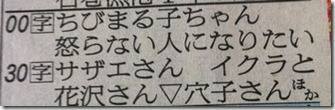 00字ちびまる子ちゃん
怒らない人になりたい
30字サザエさん　イクラと
花沢さん▽穴子さんほか